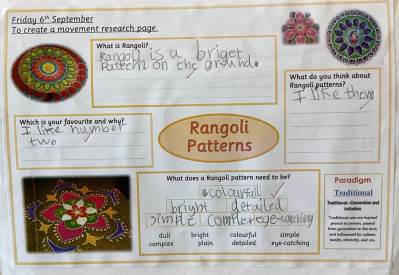 Friday 6th September
To create a movement research page.
What is Rangoli?
Rangoli is a briget
Pattern on the ground.
What do you think about
Rangoli patterns?
I like them
Which is your favourite and why?
I like number
two
Rangoli
Patterns
What does a Rangoli pattern need to be?
colourfull ✓
bright detailed
simple complex eye-catching
dull bright colourful simple
complex plain detailed eye-catching
Paradigm
Traditional
Traditional – Convention and
imitation
Traditional arts are learned
person to person, passed
from generation to the next,
and influenced by culture,
family, ethnicity, and era.